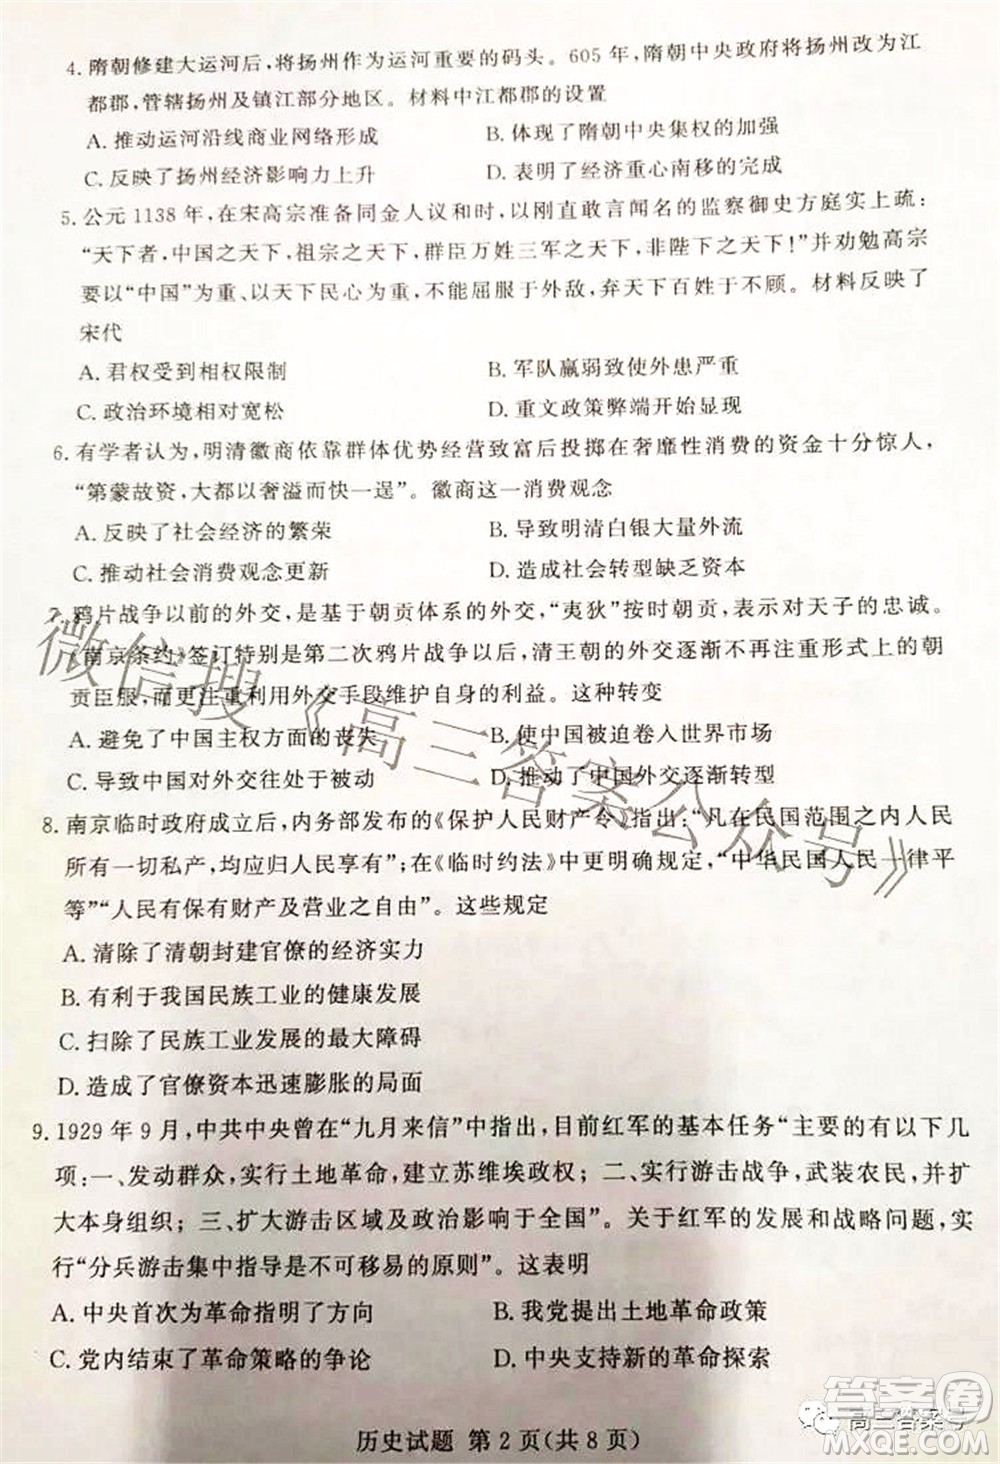 4. 隋朝修建大运河后，将扬州作为运河重要的码头。605 年，隋朝中央政府将扬州改为江
都郡，管辖扬州及镇江部分地区。材料中江都郡的设置
A. 推动运河沿线商业网络形成 B. 体现了隋朝中央集权的加强
C. 反映了扬州经济影响力上升 D. 表明了经济重心南移的完成
5. 公元 1138 年，在宋高宗准备同金人议和时，以刚直敢言闻名的监察御史方庭实上疏：
“天下者，中国之天下，祖宗之天下，群臣万姓三军之天下，非陛下之天下！”并劝勉高宗
要以“中国”为重、以天下民心为重，不能屈服于外敌，弃天下百姓于不顾。材料反映了
宋代
A. 君权受到相权限制 B. 军队羸弱致使外患严重
C. 政治环境相对宽松 D. 重文政策弊端开始显现
6. 有学者认为，明清徽商依靠群体优势经营致富后投掷在奢靡性消费的资金十分惊人，
“第蒙故资，大都以奢溢而快一逞”。徽商这一消费观念
A. 反映了社会经济的繁荣 B. 导致明清白银大量外流
C. 推动社会消费观念更新 D. 造成社会转型缺乏资本
7. 鸦片战争以前的外交，是基于朝贡体系的外交，“夷狄”按时朝贡，表示对天子的忠诚。
《南京条约》签订特别是第二次鸦片战争以后，清王朝的外交逐渐不再注重形式上的朝
贡臣服，而更注重利用外交手段维护自身的利益。这种转变
A. 避免了中国主权方面的丧失 B. 使中国被迫卷入世界市场
C. 导致中国对外交往处于被动 D. 推动了中国外交逐渐转型
8. 南京临时政府成立后，内务部发布的《保护人民财产令》指出：“凡在民国范围之内人民
所有一切私产，均应归人民享有”；在《临时约法》中更明确规定，“中华民国人民一律平
等”“人民有保有财产及营业之自由”。这些规定
A. 清除了清朝封建官僚的经济实力
B. 有利于我国民族工业的健康发展
C. 扫除了民族工业发展的最大障碍
D. 造成了官僚资本迅速膨胀的局面
9. 1929 年 9 月，中共中央曾在“九月来信”中指出，目前红军的基本任务“主要的有以下几
项：一、发动群众，实行土地革命，建立苏维埃政权；二、实行游击战争，武装农民，并扩
大本身组织；三、扩大游击区域及政治影响于全国”。关于红军的发展和战略问题，实
行“分兵游击集中指导是不可移易的原则”。这表明
A. 中央首次为革命指明了方向 B. 我党提出土地革命政策
C. 党内结束了革命策略的争论 D. 中央支持新的革命探索
历史试题 第 2 页(共 8 页)
微信搜《高三答案公众号》
高三答案号
答案圈
MXQE.COM